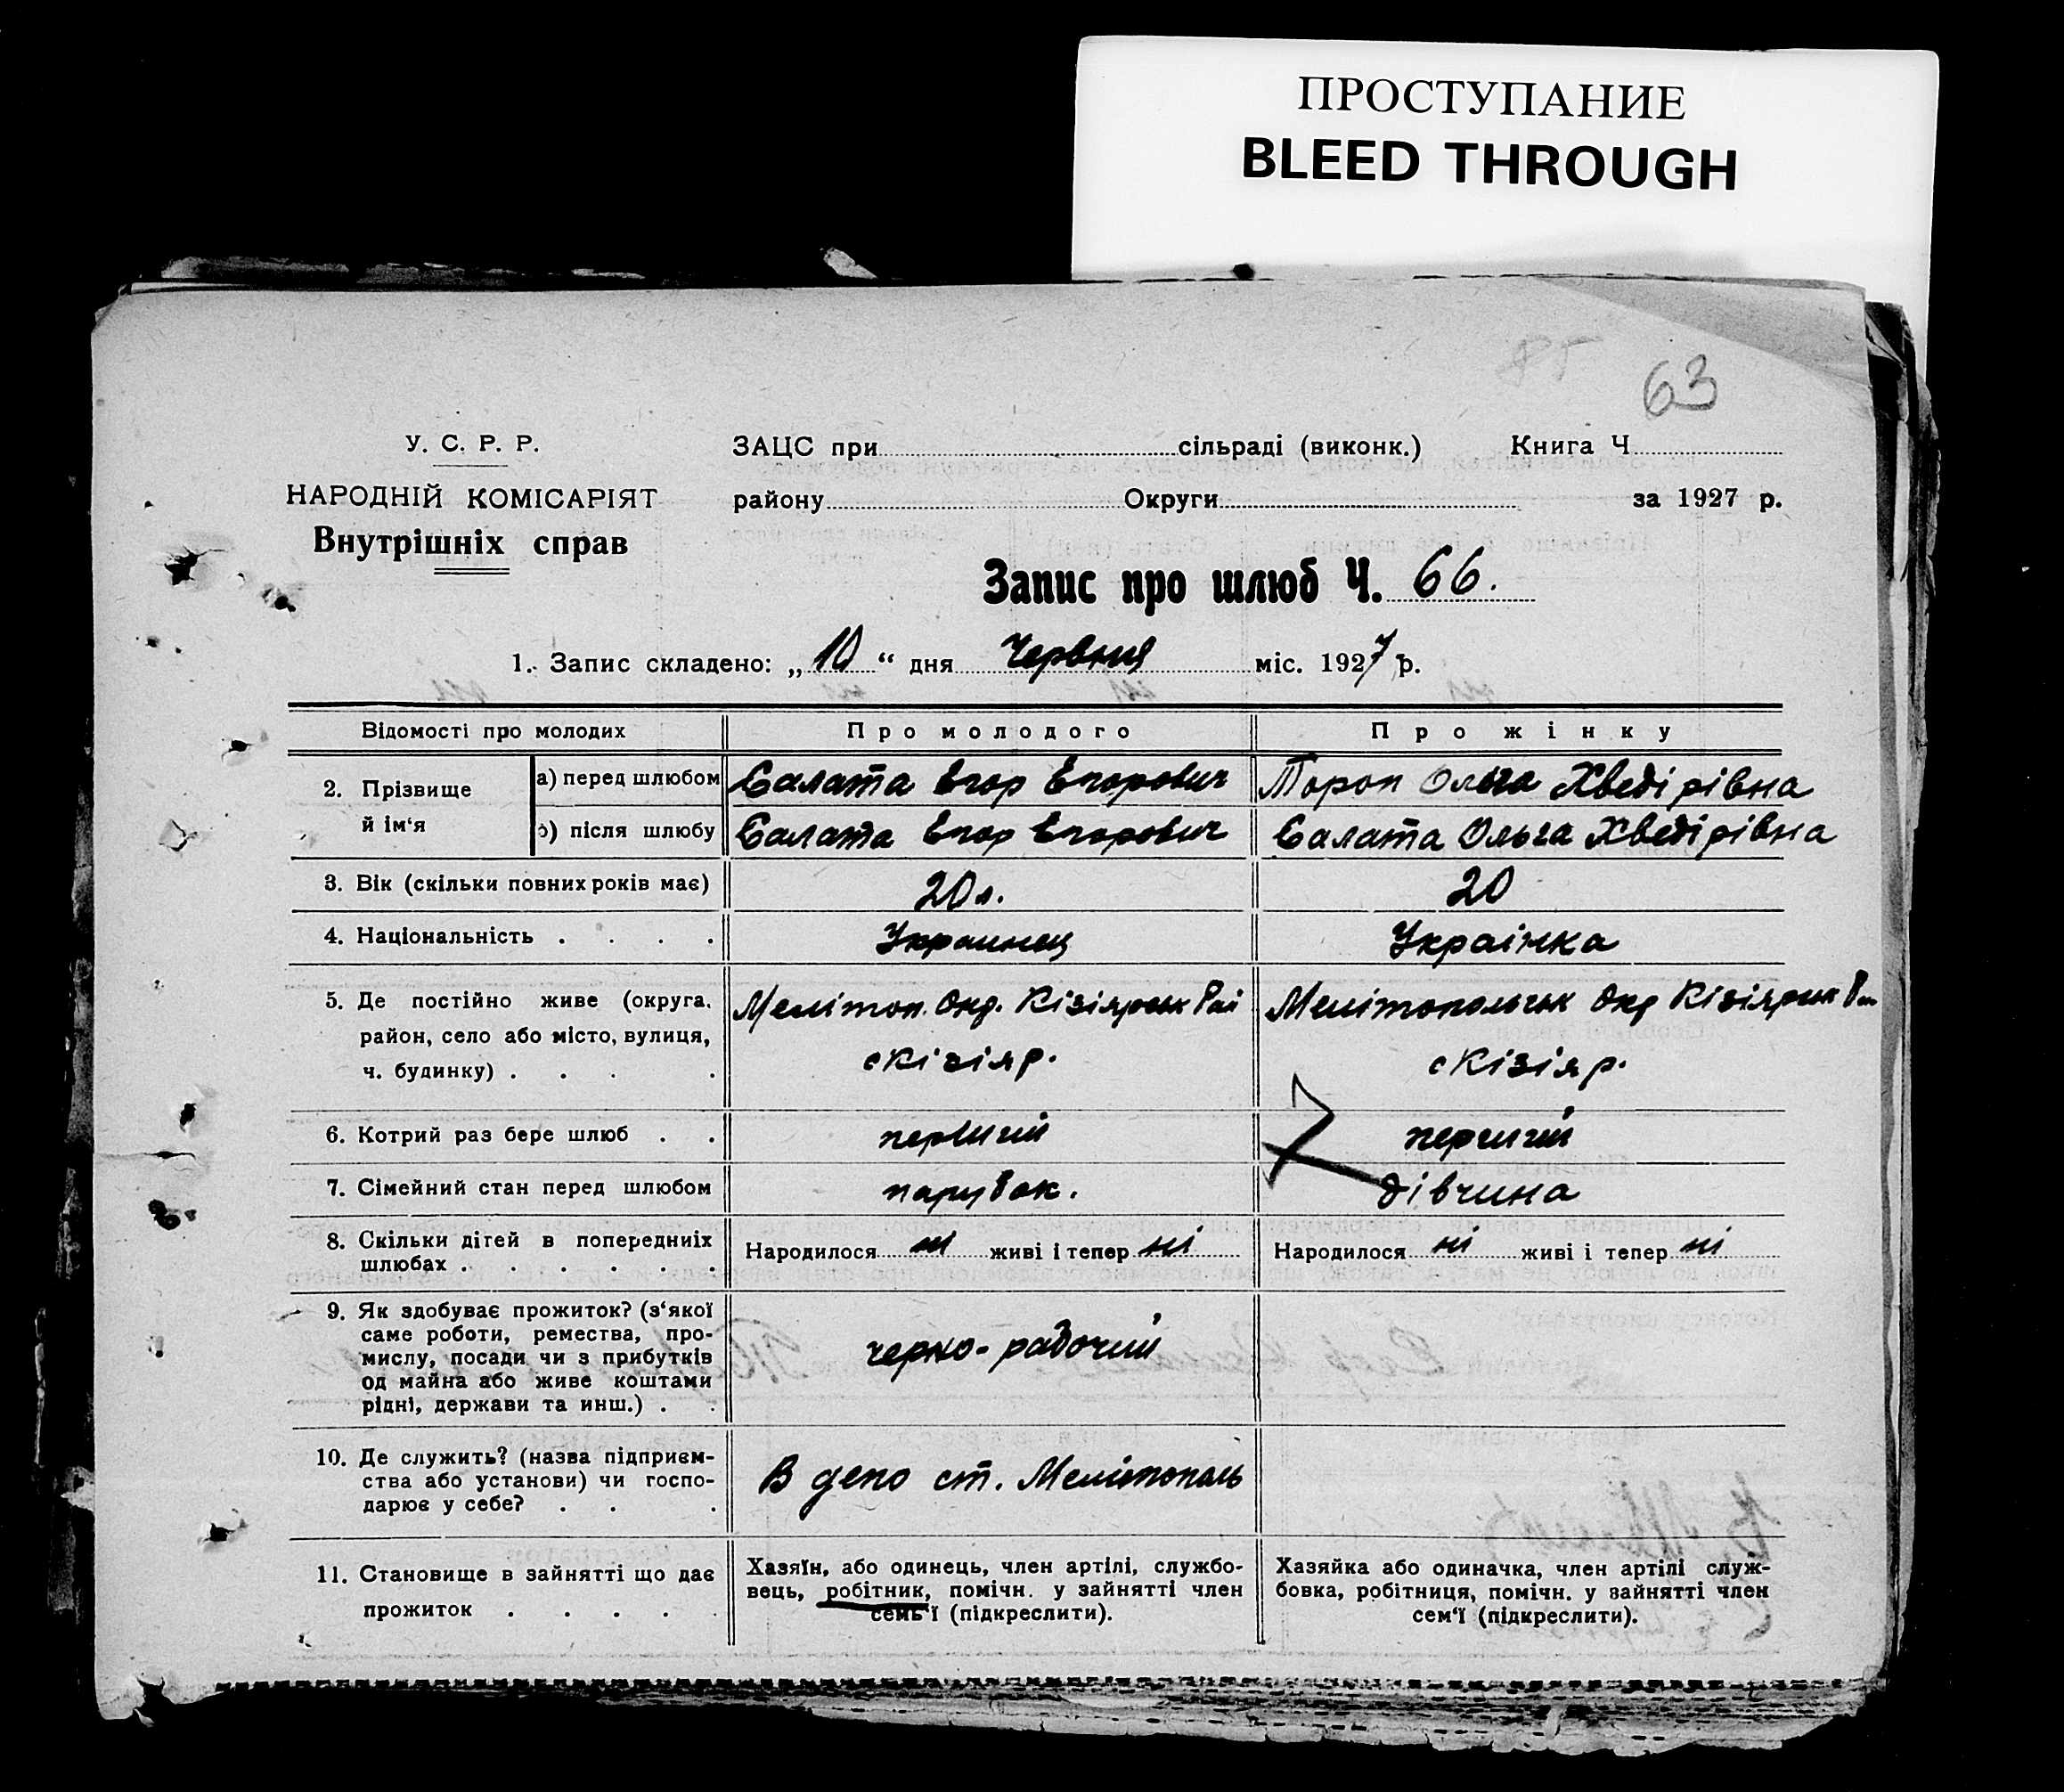 ПРОСТУПАНИЕ
BLEED THROUGH
63
У. С. Р. Р.
НАРОДНІЙ КОМІСАРІЯТ
Внутрішніх справ
ЗАЦС при сільраді (виконк.) Книга Ч
району Округи за 1927 р.
Запис про шлюб Ч. 66.
1. Запис складено: „10“ дня Червня міс. 1927 р.
Відомості про молодих Про молодого Про жінку
2. Прізвище й ім‘я
а) перед шлюбом Салата Егор Егорович Тороп Ольга Хведірівна
б) після шлюбу Салата Егор Егорович Салата Ольга Хведірівна
3. Вік (скільки повних років має) 20 л. 20
4. Національність . . . . Украинец Українка
5. Де постійно живе (округа, Мелітоп. Окр. Кізіярськ Рай Мелітопольськ Окр Кізіярськ
район, село або місто, вулиця, с Кізіяр. с Кізіяр.
ч. будинку) . . . .
6. Котрий раз бере шлюб . . первший перший
7. Сімейний стан перед шлюбом парубок. дівчина
8. Скільки дітей в попередниіх Народилося ні живі і тепер ні Народилося ні живі і тепер ні
шлюбах . . . . . .
9. Як здобуває прожиток? (з‘якої
саме роботи, ремества, про-
мислу, посади чи з прибутків черно-рабочий
од майна або живе коштами
рідні, держави та инш.) . .
10. Де служить? (назва підприєм-
ства або установи) чи госпо- В депо ст. Мелітополь
дарює у себе? . . .
11. Становище в зайнятті що дає
прожиток . . . . .
Хазяїн, або одинець, член артілі, службо-
вець, робітник, помічн. у зайнятті член
семь‘ї (підкреслити).
Хазяйка або одиначка, член артілі служ-
бовка, робітниця, помічн. у зайнятті член
сем‘ї (підкреслити).